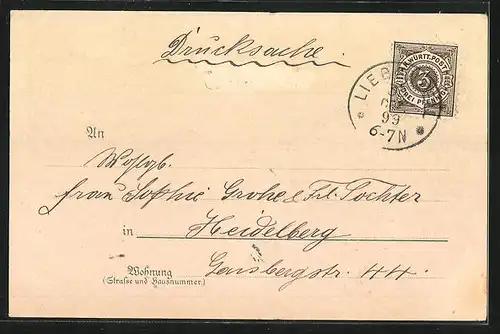 Drucksache.
K. WÜRTT. POST
3
DREI PFENNIG
LIEB
99
6-7N
An
Wohlgb.
Frau Sophie Grohe & Frl. Tochter
in Heidelberg
Wohnung Gaisbergstr. 44.
(Straße und Hausnummer.)